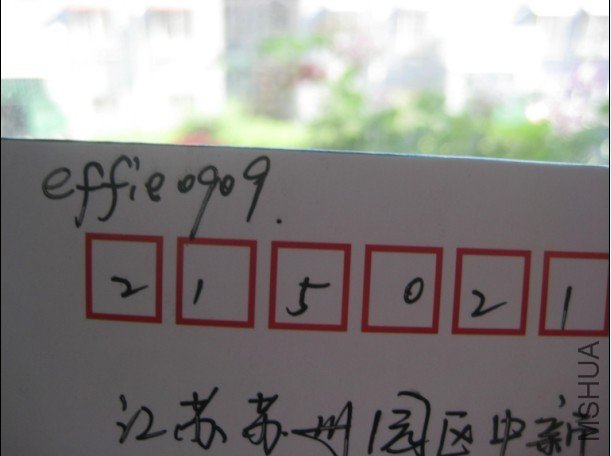 effie0909.
215021
江苏苏州园区中新
MSHUA